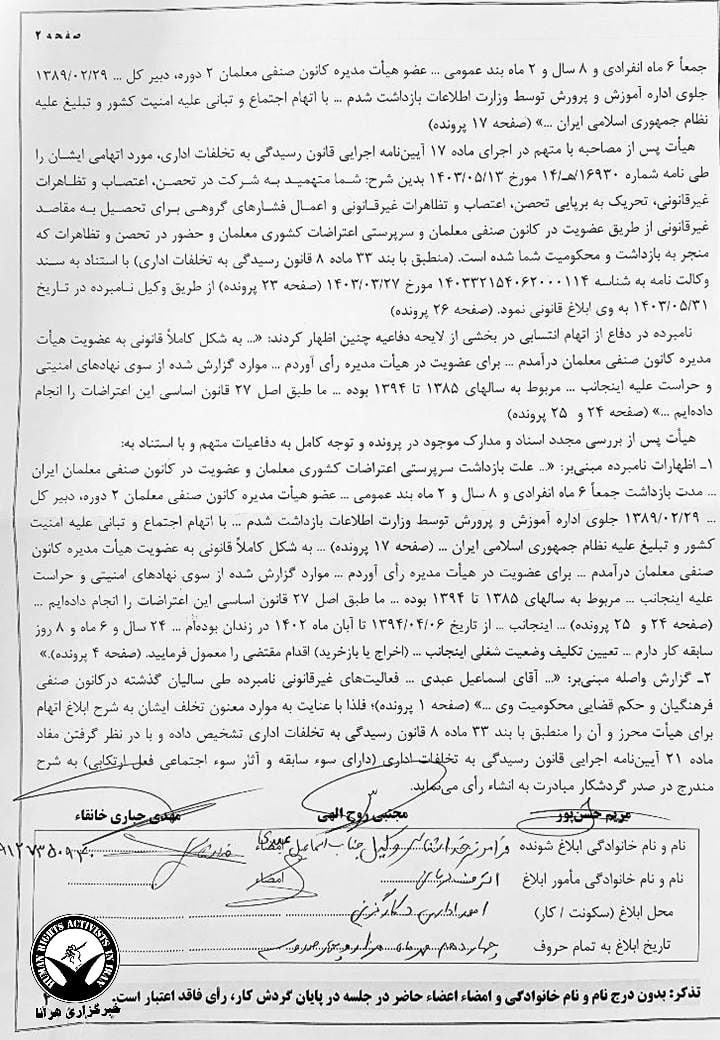 صفحه ۲
جمعاً ۶ ماه انفرادی و ۸ سال و ۲ ماه بند عمومی ... عضو هیأت مدیره کانون صنفی معلمان ۲ دوره، دبیر کل ... ۱۳۸۹/۰۲/۲۹
جلوی اداره آموزش و پرورش توسط وزارت اطلاعات بازداشت شدم ... با اتهام اجتماع و تبانی علیه امنیت کشور و تبلیغ علیه
نظام جمهوری اسلامی ایران ...» (صفحه ۱۷ پرونده)
هیأت پس از مصاحبه با متهم در اجرای ماده ۱۷ آیین‌نامه اجرایی قانون رسیدگی به تخلفات اداری، مورد اتهامی ایشان را
طی نامه شماره ۱۴/هـ/۱۶۹۳۰ مورخ ۱۴۰۳/۰۵/۱۳ بدین شرح: شما متهمید به شرکت در تحصن، اعتصاب و تظاهرات
غیرقانونی، تحریک به برپایی تحصن، اعتصاب و تظاهرات غیرقانونی و اعمال فشارهای گروهی برای تحصیل به مقاصد
غیرقانونی از طریق عضویت در کانون صنفی معلمان و سرپرستی اعتراضات کشوری معلمان و حضور در تحصن و تظاهرات که
منجر به بازداشت و محکومیت شما شده است. (منطبق با بند ۳۳ ماده ۸ قانون رسیدگی به تخلفات اداری) با استناد به سند
وکالت نامه به شناسه ۱۴۰۳۳۲۱۵۴۰۶۲۰۰۰۱۱۴ مورخ ۱۴۰۳/۰۳/۲۷ (صفحه ۲۳ پرونده) از طریق وکیل نامبرده در تاریخ
۱۴۰۳/۰۵/۳۱ به وی ابلاغ قانونی نمود. (صفحه ۲۶ پرونده)
نامبرده در دفاع از اتهام انتسابی در بخشی از لایحه دفاعیه چنین اظهار کردند: «... به شکل کاملاً قانونی به عضویت هیأت
مدیره کانون صنفی معلمان درآمدم ... برای عضویت در هیأت مدیره رأی آوردم ... موارد گزارش شده از سوی نهادهای امنیتی
و حراست علیه اینجانب ... مربوط به سالهای ۱۳۸۵ تا ۱۳۹۴ بوده ... ما طبق اصل ۲۷ قانون اساسی این اعتراضات را انجام
داده‌ایم ...» (صفحه ۲۴ و ۲۵ پرونده)
هیأت پس از بررسی مجدد اسناد و مدارک موجود در پرونده و توجه کامل به دفاعیات متهم و با استناد به:
۱ـ اظهارات نامبرده مبنی‌بر: «... علت بازداشت سرپرستی اعتراضات کشوری معلمان و عضویت در کانون صنفی معلمان ایران
... مدت بازداشت جمعاً ۶ ماه انفرادی و ۸ سال و ۲ ماه بند عمومی ... عضو هیأت مدیره کانون صنفی معلمان ۲ دوره، دبیر کل
... ۱۳۸۹/۰۲/۲۹ جلوی اداره آموزش و پرورش توسط وزارت اطلاعات بازداشت شدم ... با اتهام اجتماع و تبانی علیه امنیت
کشور و تبلیغ علیه نظام جمهوری اسلامی ایران ... (صفحه ۱۷ پرونده) ... به شکل کاملاً قانونی به عضویت هیأت مدیره کانون
صنفی معلمان درآمدم ... برای عضویت در هیأت مدیره رأی آوردم ... موارد گزارش شده از سوی نهادهای امنیتی و حراست
علیه اینجانب ... مربوط به سالهای ۱۳۸۵ تا ۱۳۹۴ بوده ... ما طبق اصل ۲۷ قانون اساسی این اعتراضات را انجام داده‌ایم ...
(صفحه ۲۴ و ۲۵ پرونده) ... اینجانب ... از تاریخ ۱۳۹۴/۰۴/۰۶ تا آبان ماه ۱۴۰۲ در زندان بوده‌ام ... ۲۴ سال و ۶ ماه و ۸ روز
سابقه کار دارم ... تعیین تکلیف وضعیت شغلی اینجانب ... (اخراج یا بازخرید) اقدام مقتضی را معمول فرمایید. (صفحه ۴ پرونده).»
۲ـ گزارش واصله مبنی‌بر: «... آقای اسماعیل عبدی ... فعالیت‌های غیرقانونی نامبرده طی سالیان گذشته درکانون صنفی
فرهنگیان و حکم قضایی محکومیت وی ...» (صفحه ۱ پرونده)؛ فلذا با عنایت به موارد معنون تخلف ایشان به شرح ابلاغ اتهام
برای هیأت محرز و آن را منطبق با بند ۳۳ ماده ۸ قانون رسیدگی به تخلفات اداری تشخیص داده و با در نظر گرفتن مفاد
ماده ۲۱ آیین‌نامه اجرایی قانون رسیدگی به تخلفات اداری (دارای سوء سابقه و آثار سوء اجتماعی فعل ارتکابی) به شرح
مندرج در صدر گردشکار مبادرت به انشاء رأی می‌نماید.
مریم حسن‌پور مجتبی روح الهی مهدی جباری خانقاء
نام و نام خانوادگی ابلاغ شونده وکیل جناب اسماعیل عبدی امضاء
نام و نام خانوادگی مأمور ابلاغ امضاء
محل ابلاغ (سکونت / کار) امور اداری
تاریخ ابلاغ به تمام حروف چهاردهم
تذکر: بدون درج نام و نام خانوادگی و امضاء اعضاء حاضر در جلسه در پایان گردش کار، رأی فاقد اعتبار است. ۴
HUMAN RIGHTS ACTIVISTS IN IRAN
خبرگزاری هرانا